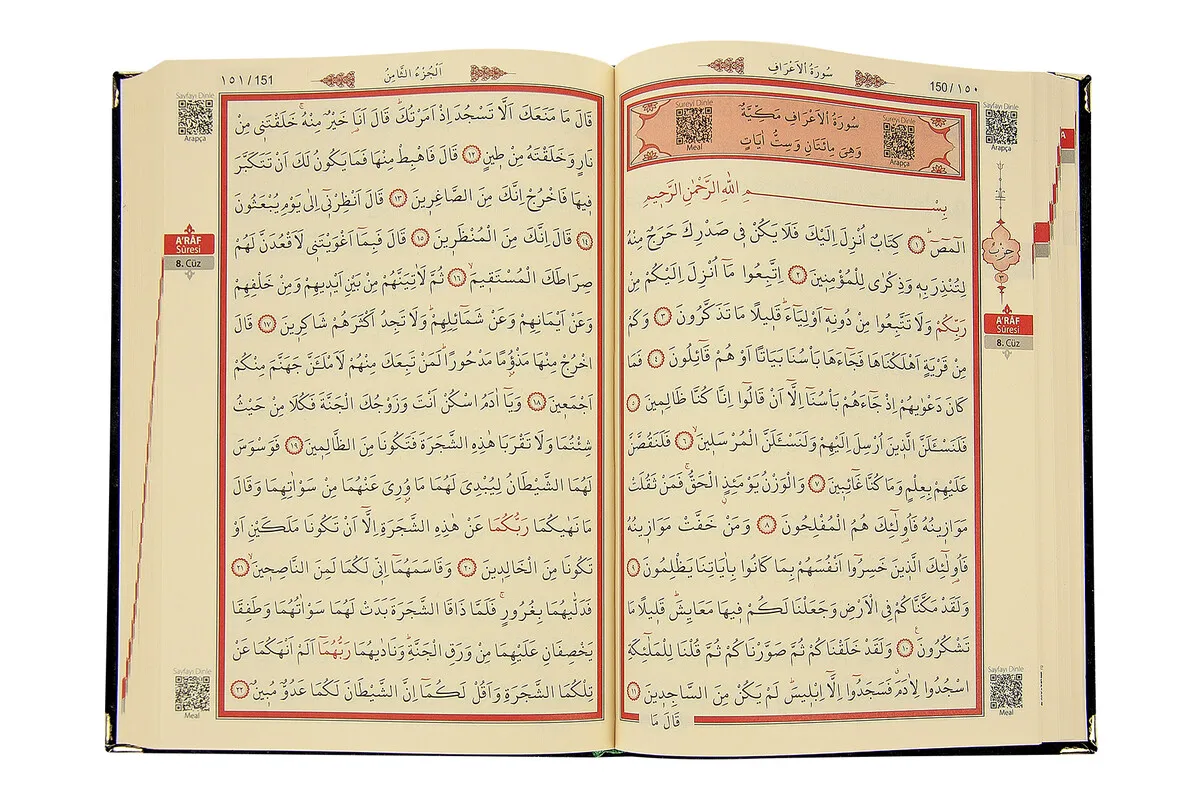 سُورَةُ الْاَعْرَافِ
150/١٥٠
Sayfayı Dinle
Arapça
Sureyi Dinle
Meal
Sureyi Dinle
Arapça
سُورَةُ الْاَعْرَافِ مَكِّيَّةٌ
وَهِيَ مِائَتَانِ وَسِتُّ اٰيَاتٍ
بِسْــــمِ اللّٰهِ الرَّحْمٰنِ الرَّحٖيمِ
الٓمٓصٓ ۚ ﴿١﴾ كِتَابٌ اُنْزِلَ اِلَيْكَ فَلَا يَكُنْ فٖى صَدْرِكَ حَرَجٌ مِنْهُ
لِتُنْذِرَ بِهٖ وَذِكْرٰى لِلْمُؤْمِنٖينَ ﴿٢﴾ اِتَّبِعُوا مَٓا اُنْزِلَ اِلَيْكُمْ مِنْ
رَبِّكُمْ وَلَا تَتَّبِعُوا مِنْ دُونِهٖٓ اَوْلِيَٓاءَ ۜ قَلٖيلًا مَا تَذَكَّرُونَ ﴿٣﴾ وَكَمْ
مِنْ قَرْيَةٍ اَهْلَكْنَاهَا فَجَٓاءَهَا بَأْسُنَا بَيَاتًا اَوْ هُمْ قَٓائِلُونَ ﴿٤﴾ فَمَا
كَانَ دَعْوٰيهُمْ اِذْ جَٓاءَهُمْ بَأْسُنَٓا اِلَّٓا اَنْ قَالُٓوا اِنَّا كُنَّا ظَالِمٖينَ ﴿٥﴾
فَلَنَسْـَٔلَنَّ الَّذٖينَ اُرْسِلَ اِلَيْهِمْ وَلَنَسْـَٔلَنَّ الْمُرْسَلٖينَ ۙ ﴿٦﴾ فَلَنَقُصَّنَّ
عَلَيْهِمْ بِعِلْمٍ وَمَا كُنَّا غَٓائِبٖينَ ﴿٧﴾ وَالْوَزْنُ يَوْمَئِذٍ الْحَقُّ ۚ فَمَنْ ثَقُلَتْ
مَوَازٖينُهُ فَاُو۬لٰٓئِكَ هُمُ الْمُفْلِحُونَ ﴿٨﴾ وَمَنْ خَفَّتْ مَوَازٖينُهُ
فَاُو۬لٰٓئِكَ الَّذٖينَ خَسِرُٓوا اَنْفُسَهُمْ بِمَا كَانُوا بِاٰيَاتِنَا يَظْلِمُونَ ﴿٩﴾
وَلَقَدْ مَكَّنَّاكُمْ فِى الْاَرْضِ وَجَعَلْنَا لَكُمْ فٖيهَا مَعَايِشَ ۜ قَلٖيلًا مَا
تَشْكُرُونَ ۟ ﴿١٠﴾ وَلَقَدْ خَلَقْنَاكُمْ ثُمَّ صَوَّرْنَاكُمْ ثُمَّ قُلْنَا لِلْمَلٰٓئِكَةِ
اسْجُدُوا لِاٰدَمَ ۗ فَسَجَدُٓوا اِلَّٓا اِبْلٖيسَ ۜ لَمْ يَكُنْ مِنَ السَّاجِدٖينَ ﴿١١﴾
قَالَ مَا
حزب
٣
A'RÂF
Sûresi
8. Cüz
Sayfayı Dinle
Meal
١٥١/151
اَلْجُزْءُ الثَّامِنُ
Sayfayı Dinle
Arapça
قَالَ مَا مَنَعَكَ اَلَّا تَسْجُدَ اِذْ اَمَرْتُكَ ۜ قَالَ اَنَا۬ خَيْرٌ مِنْهُ ۚ خَلَقْتَنٖى مِنْ
نَارٍ وَخَلَقْتَهُ مِنْ طٖينٍ ﴿١٢﴾ قَالَ فَاهْبِطْ مِنْهَا فَمَا يَكُونُ لَكَ اَنْ تَتَكَبَّرَ
فٖيهَا فَاخْرُجْ اِنَّكَ مِنَ الصَّاغِرٖينَ ﴿١٣﴾ قَالَ اَنْظِرْنٖٓى اِلٰى يَوْمِ يُبْعَثُونَ
﴿١٤﴾ قَالَ اِنَّكَ مِنَ الْمُنْظَرٖينَ ﴿١٥﴾ قَالَ فَبِمَٓا اَغْوَيْتَنٖى لَاَقْعُدَنَّ لَهُمْ
صِرَاطَكَ الْمُسْتَقٖيمَ ۙ ﴿١٦﴾ ثُمَّ لَاٰتِيَنَّهُمْ مِنْ بَيْنِ اَيْدٖيهِمْ وَمِنْ خَلْفِهِمْ
وَعَنْ اَيْمَانِهِمْ وَعَنْ شَمَٓائِلِهِمْ ۜ وَلَا تَجِدُ اَكْثَرَهُمْ شَاكِرٖينَ ﴿١٧﴾ قَالَ
اخْرُجْ مِنْهَا مَذْؤُ۫مًا مَدْحُورًا ۜ لَمَنْ تَبِعَكَ مِنْهُمْ لَاَمْلَـَٔنَّ جَهَنَّمَ مِنْكُمْ
اَجْمَعٖينَ ﴿١٨﴾ وَيَٓا اٰدَمُ اسْكُنْ اَنْتَ وَزَوْجُكَ الْجَنَّةَ فَكُلَا مِنْ حَيْثُ
شِئْتُمَا وَلَا تَقْرَبَا هٰذِهِ الشَّجَرَةَ فَتَكُونَا مِنَ الظَّالِمٖينَ ﴿١٩﴾ فَوَسْوَسَ
لَهُمَا الشَّيْطَانُ لِيُبْدِىَ لَهُمَا مَا وُ۫رِىَ عَنْهُمَا مِنْ سَوْاٰتِهِمَا وَقَالَ
مَا نَهٰيكُمَا رَبُّكُمَا عَنْ هٰذِهِ الشَّجَرَةِ اِلَّٓا اَنْ تَكُونَا مَلَكَيْنِ اَوْ
تَكُونَا مِنَ الْخَالِدٖينَ ﴿٢٠﴾ وَقَاسَمَهُمَٓا اِنّٖى لَكُمَا لَمِنَ النَّاصِحٖينَ ۙ ﴿٢١﴾
فَدَلّٰيهُمَا بِغُرُورٍ ۚ فَلَمَّا ذَاقَا الشَّجَرَةَ بَدَتْ لَهُمَا سَوْاٰتُهُمَا وَطَفِقَا
يَخْصِفَانِ عَلَيْهِمَا مِنْ وَرَقِ الْجَنَّةِ ۜ وَنَادٰيهُمَا رَبُّهُمَٓا اَلَمْ اَنْهَكُمَا عَنْ
تِلْكُمَا الشَّجَرَةِ وَاَقُلْ لَكُمَٓا اِنَّ الشَّيْطَانَ لَكُمَا عَدُوٌّ مُبٖينٌ ﴿٢٢﴾
A'RÂF
Sûresi
8. Cüz
Sayfayı Dinle
Meal